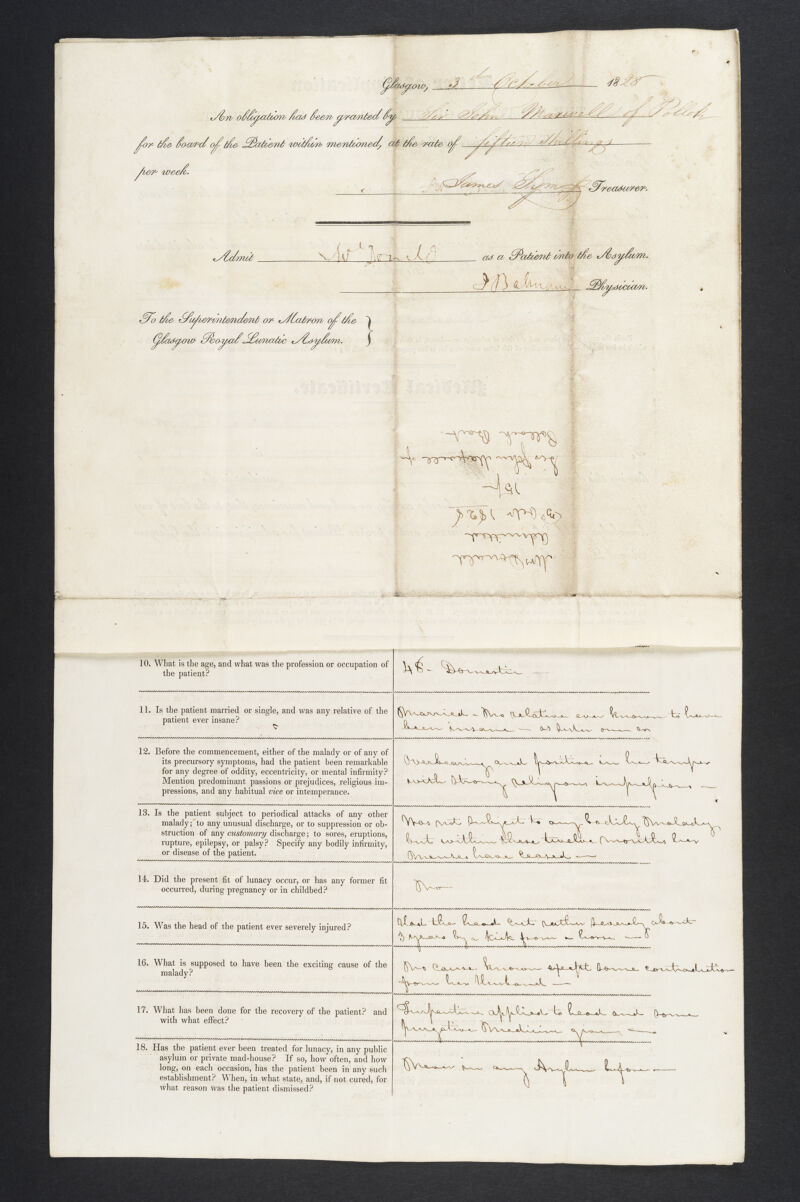 Glasgow, 3d October 1828
An obligation has been granted by Sir John Maxwell of Pollok
for the board of the Patient within mentioned, at the rate of fifteen shillings
per week.
James Treasurer.
Admit as a Patient into the Asylum.
Physician.
To the Superintendent or Matron of the
Glasgow Royal Lunatic Asylum.
McDonald
Admitted
3d Octr 1828
15/-
Sir John Maxwell of
Pollock Bart.
10. What is the age, and what was the profession or occupation of
the patient?
48 - Domestic -
11. Is the patient married or single, and was any relative of the
patient ever insane?
Married - No relative ever known to have
been insane -
12. Before the commencement, either of the malady or of any of
its precursory symptoms, had the patient been remarkable
for any degree of oddity, eccentricity, or mental infirmity?
Mention predominant passions or prejudices, religious im-
pressions, and any habitual vice or intemperance.
Overbearing and positive in her temper
with strong religious impressions -
13. Is the patient subject to periodical attacks of any other
malady; to any unusual discharge, or to suppression or ob-
struction of any customary discharge; to sores, eruptions,
rupture, epilepsy, or palsy? Specify any bodily infirmity,
or disease of the patient.
Was not subject to any bodily malady
but within these twelve months her
menses have ceased -
14. Did the present fit of lunacy occur, or has any former fit
occurred, during pregnancy or in childbed?
No
15. Was the head of the patient ever severely injured?
Had the head cut rather severely about
3 years by a kick from a horse -
16. What is supposed to have been the exciting cause of the
malady?
No cause known except some contradiction
from her Husband -
17. What has been done for the recovery of the patient? and
with what effect?
Turpentine applied to head and some
purgative medicine given -
18. Has the patient ever been treated for lunacy, in any public
asylum or private mad-house? If so, how often, and how
long, on each occasion, has the patient been in any such
establishment? When, in what state, and, if not cured, for
what reason was the patient dismissed?
Never in any Asylum before -